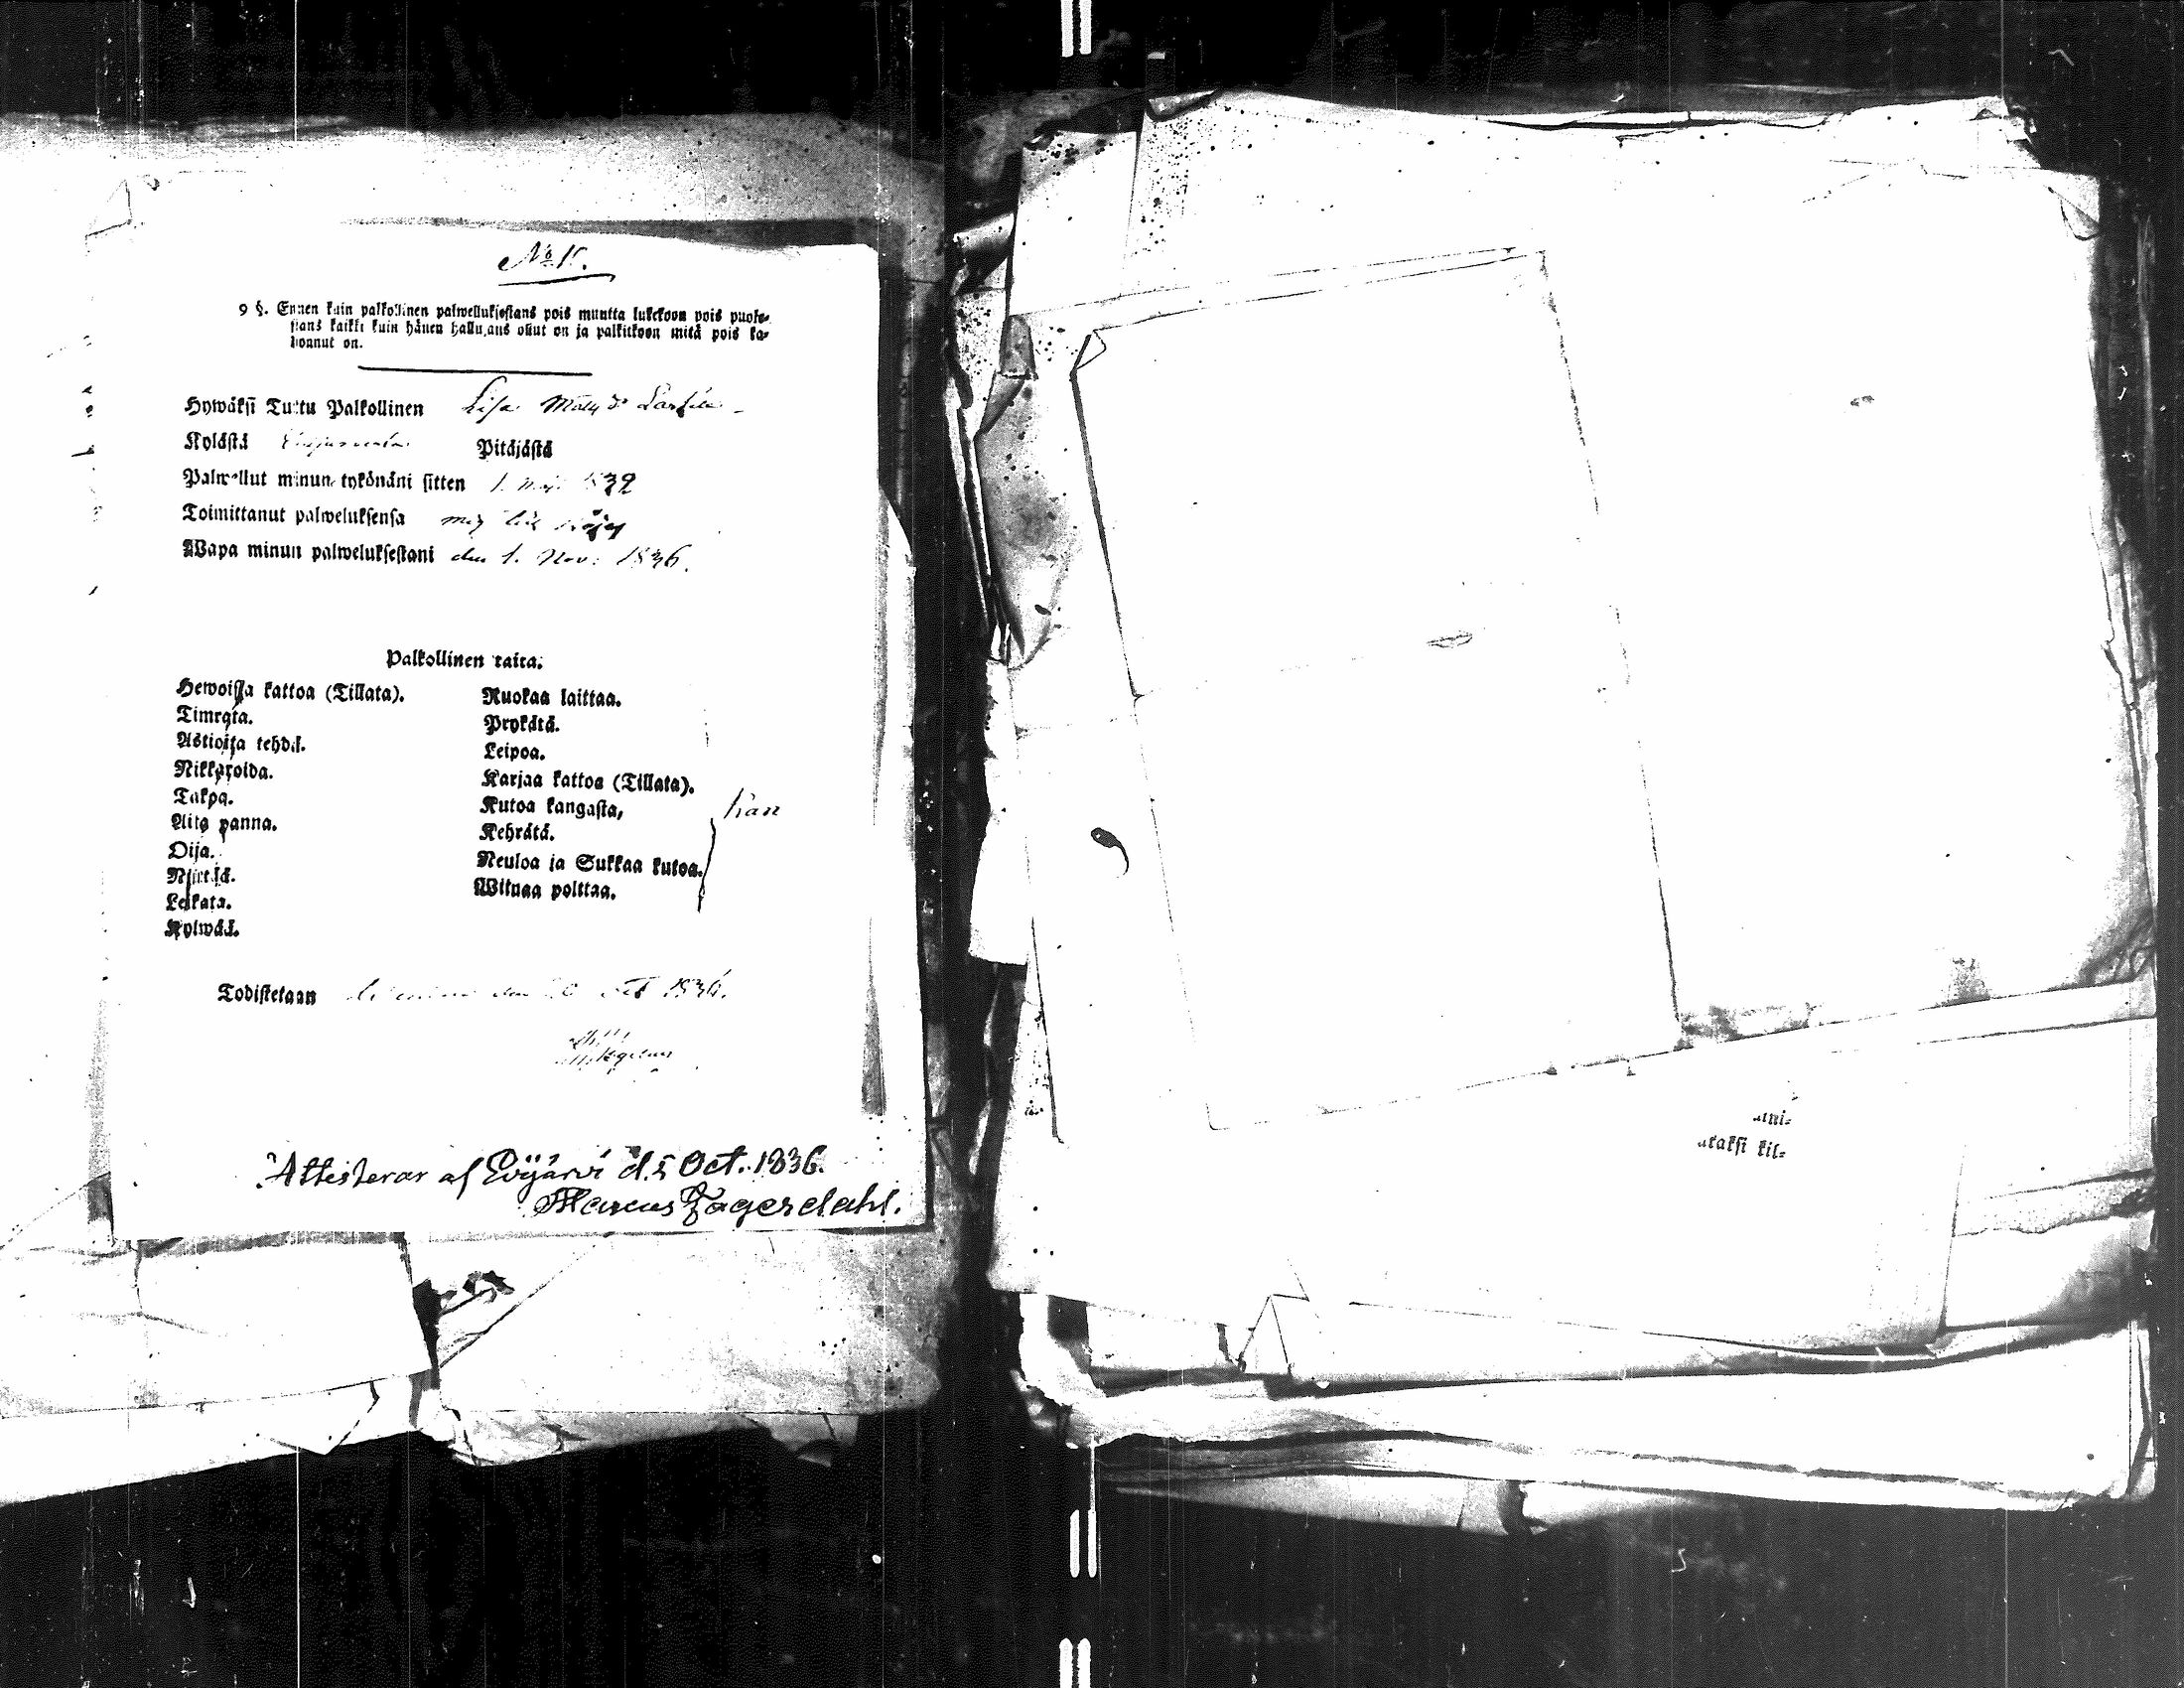 No 11.
9 §. Ennen kuin palkollinen palwelluksestans pois muutta lukekoon pois puoles-
stans kaikki kuin hänen hallusans ollut on ja palkitkoon mitä pois ka-
donnut on.
Hywäksi Tuttu Palkollinen Lisa Matts dr
Kylästä Pitäjästä
Palwellut minun tykönäni sitten 1. Maji 1832
Toimittanut palweluksensa mig till nöje
Wapa minun palweluksestani den 1. Nov: 1836.
Palkollinen taita.
Hewoisia kattoa (Tillata).
Timrata.
Astioita tehdä.
Nikkaroida.
Takoa.
Aita panna.
Oija.
Niittää.
Leikata.
Kylwää.
Ruokaa laittaa.
Prykätä.
Leipoa.
Karjaa kattoa (Tillata).
Kutoa kangasta,
Kehrätä.
Neuloa ja Sukkaa kutoa.
Wiinaa polttaa.
kan
Todistetaan den 20 Oct 1836.
Attesterar af Evijärvi d. 5 Oct. 1836.
Marcus Fagerdahl.
kaksi kil-